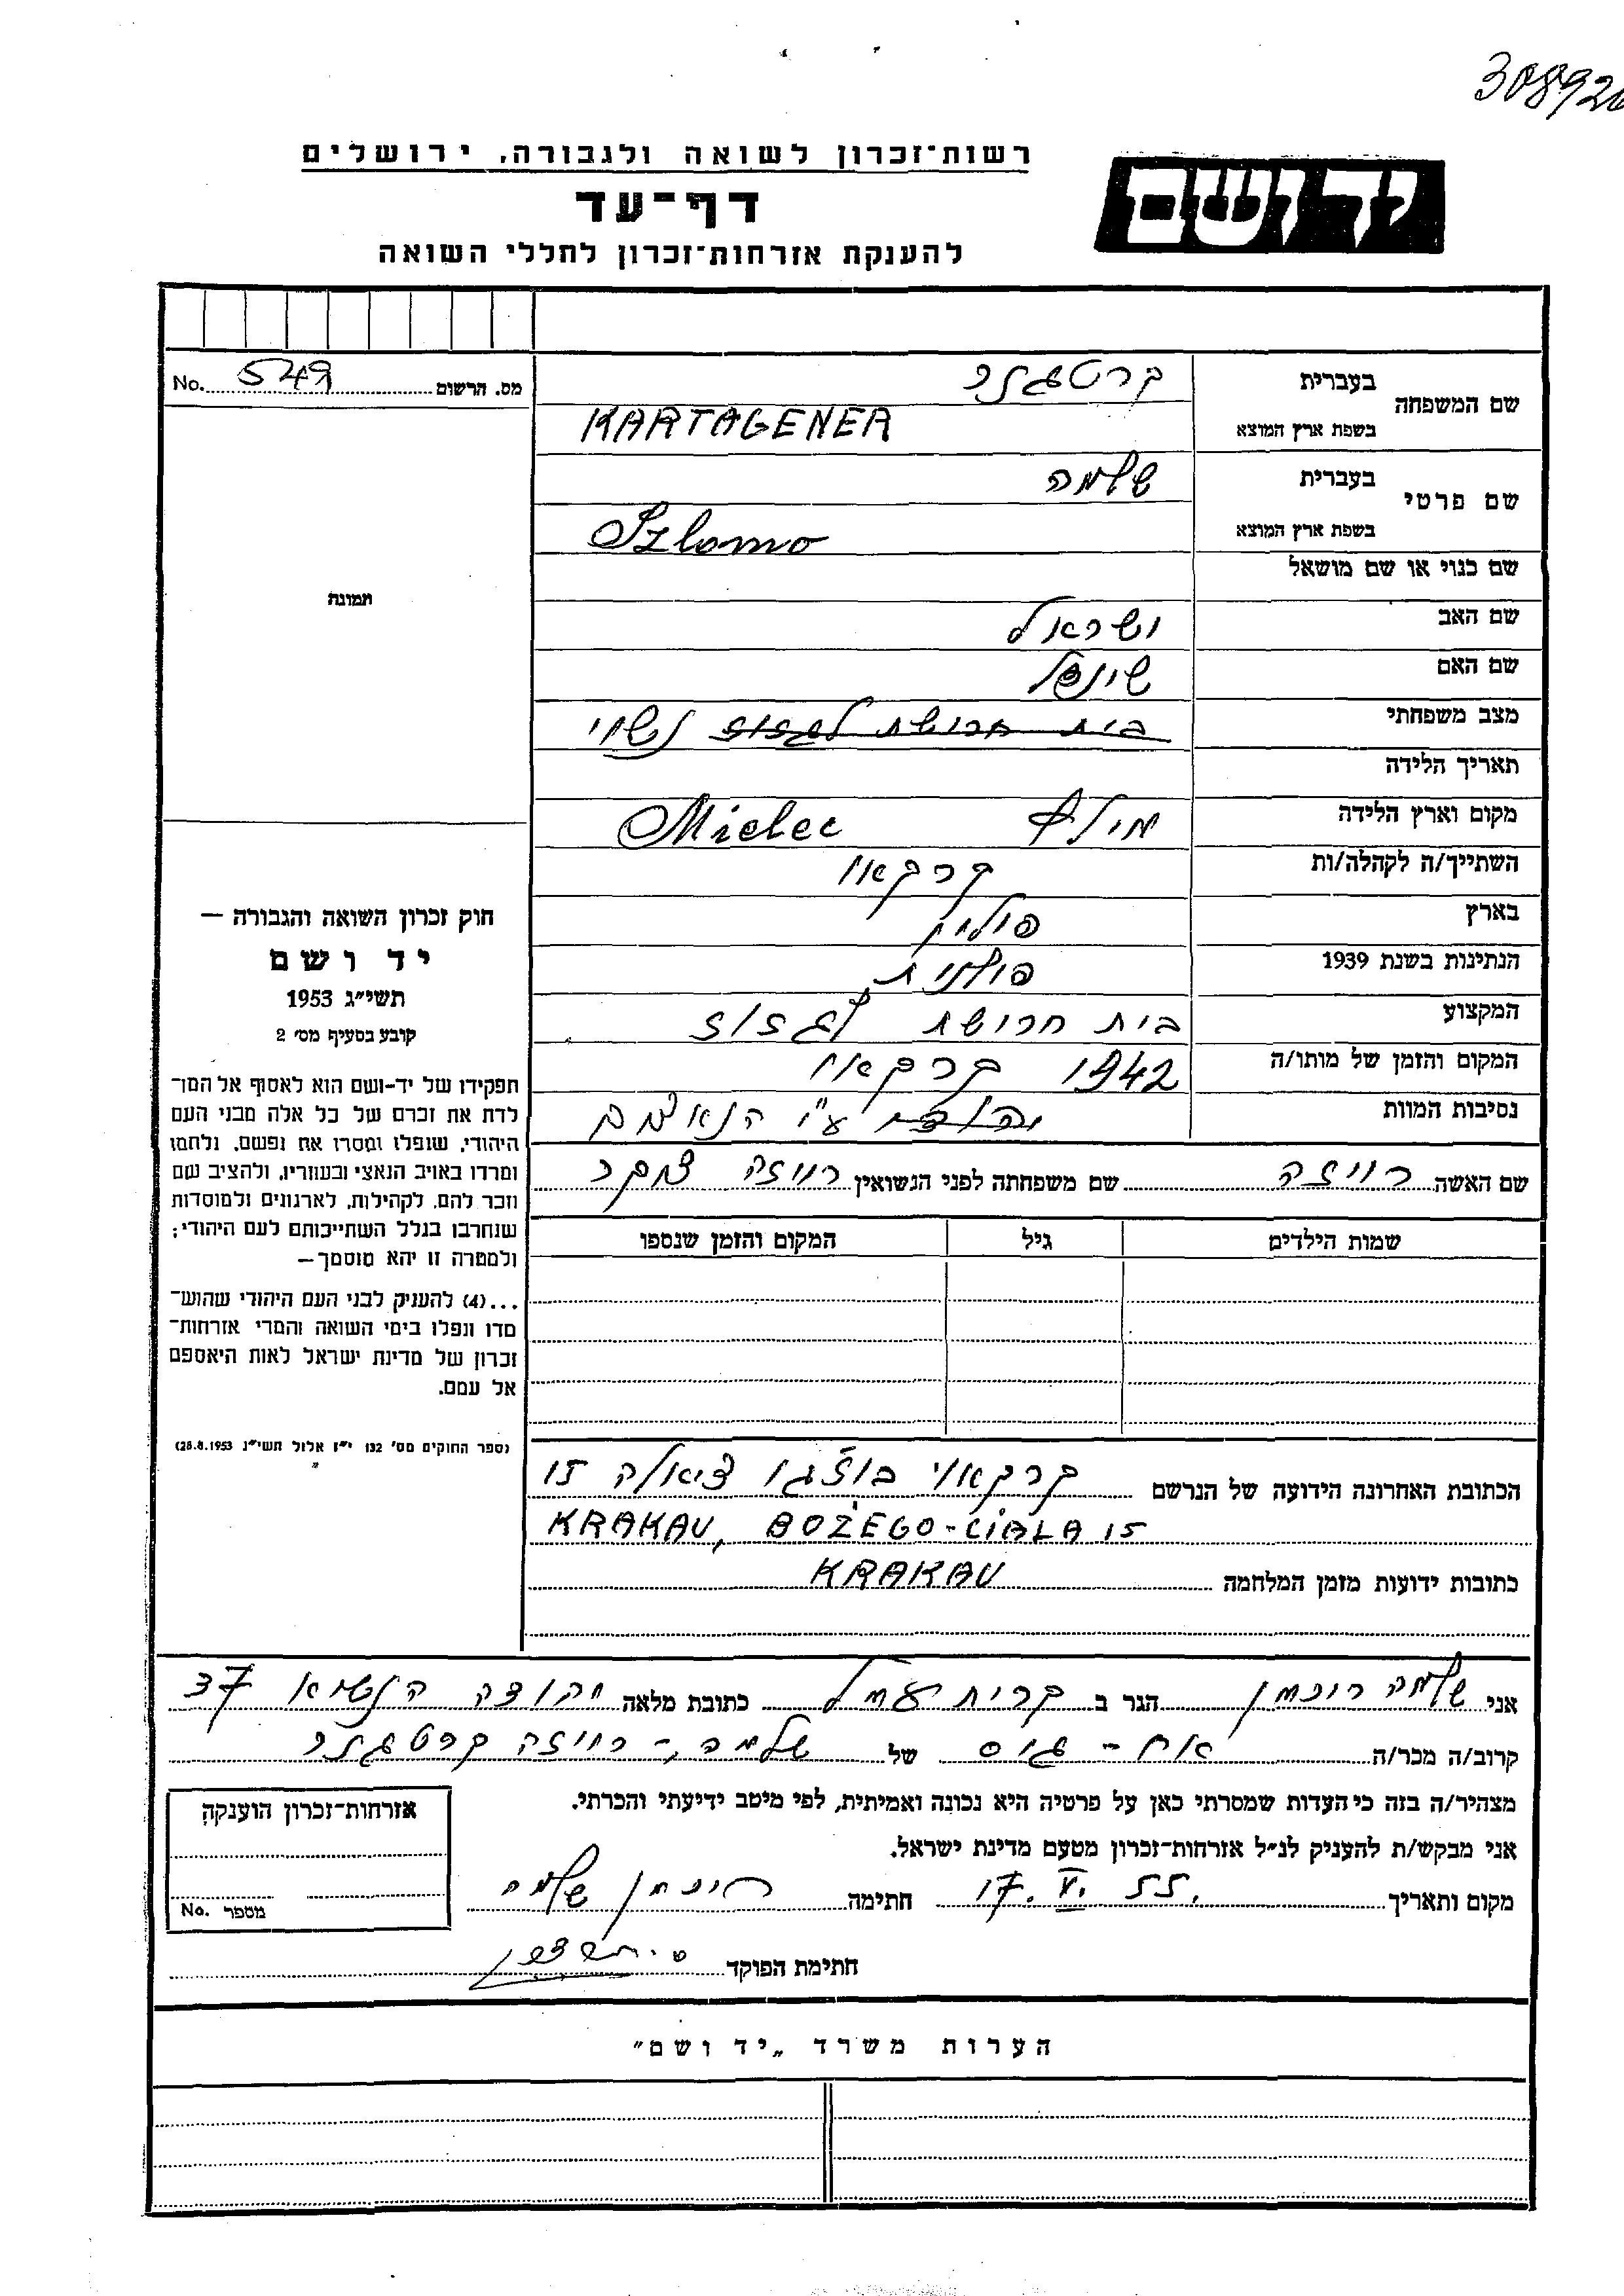 308926
רשות־זכרון לשואה ולגבורה, ירושלים
יד ושם
דף־עד
להענקת אזרחות־זכרון לחללי השואה
שם המשפחה
בעברית קרטגנר
בשפת ארץ המוצא KARTAGENER
מס. הרשום 549 No.
שם פרטי
בעברית שלמה
בשפת ארץ המוצא Szlomo
שם כנוי או שם מושאל
תמונה
שם האב ישראל
שם האם שיינדל
מצב משפחתי בית חרושת לגזוז נשוי
תאריך הלידה
מקום וארץ הלידה מילץ Mielec
השתייך/ה לקהלה/ות קרקאו
בארץ פולין
הנתינות בשנת 1939 פולנית
המקצוע בית חרושת לגזוז
המקום והזמן של מותו/ה 1942 קרקאו
נסיבות המוות ע"י הנאצים
שם האשה רויזה שם משפחתה לפני הנשואין רויזה צוקר
שמות הילדים גיל המקום והזמן שנספו
חוק זכרון השואה והגבורה —
יד ושם
תשי״ג 1953
קובע בסעיף מס׳ 2
תפקידו של יד-ושם הוא לאסוף אל המו־
לדת את זכרם של כל אלה מבני העם
היהודי, שנפלו ומסרו את נפשם, נלחמו
ומרדו באויב הנאצי ובעוזריו, ולהציב שם
וזכר להם, לקהילות, לארגונים ולמוסדות
שנחרבו בגלל השתייכותם לעם היהודי;
ולמטרה זו יהא מוסמך—
...(4) להעניק לבני העם היהודי שהוש־
מדו ונפלו בימי השואה והמרי אזרחות־
זכרון של מדינת ישראל לאות היאספם
אל עמם.
(ספר החוקים מס׳ 132 י״ז אלול תשי״ג 28.8.1953)
הכתובת האחרונה הידועה של הנרשם קרקאוי בוז'גו ציאלה 15
KRAKAU, BOŻEGO-CIALA 15
כתובות ידועות מזמן המלחמה KRAKAU
אני שלמה רינמן הגר ב קרית עמל כתובת מלאה יהודה הנשיא 37
קרוב/ה מכר/ה אח-גיס של שלמה, רויזה קרטגנר
מצהיר/ה בזה כי העדות שמסרתי כאן על פרטיה היא נכונה ואמיתית, לפי מיטב ידיעתי והכרתי.
אני מבקש/ת להעניק לנ״ל אזרחות־זכרון מטעם מדינת ישראל.
מקום ותאריך 17. VI. 55. חתימה רינמן שלמה
חתימת הפוקד
אזרחות־זכרון הוענקה
מספר No.
הערות משרד „יד ושם״